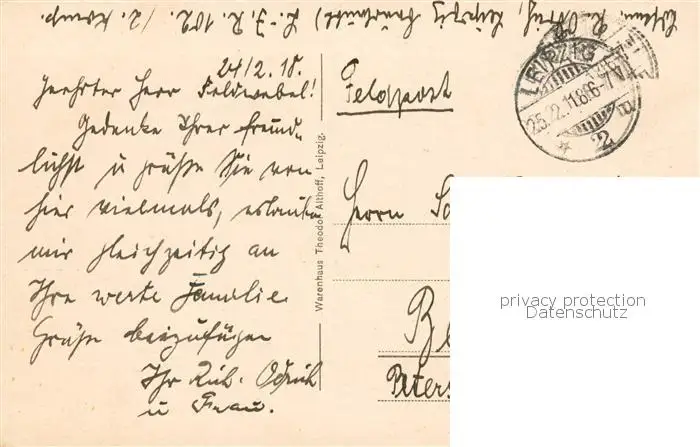 L. I. R. 102 /2. Komp.
24/2. 18.
Geehrter Herr Feldwebel!
Gedenke Ihrer freund-
lichst u grüße Sie von
hier vielmals, erlaube
mir gleichzeitig an
Ihre werte Familie
Grüße beizufügen
Ihr Rich.
u Frau.
Warenhaus Theodor Althoff, Leipzig.
Feldpost
LEIPZIG
25.2.18.6-7N
* 2
Herrn
privacy protection
Datenschutz